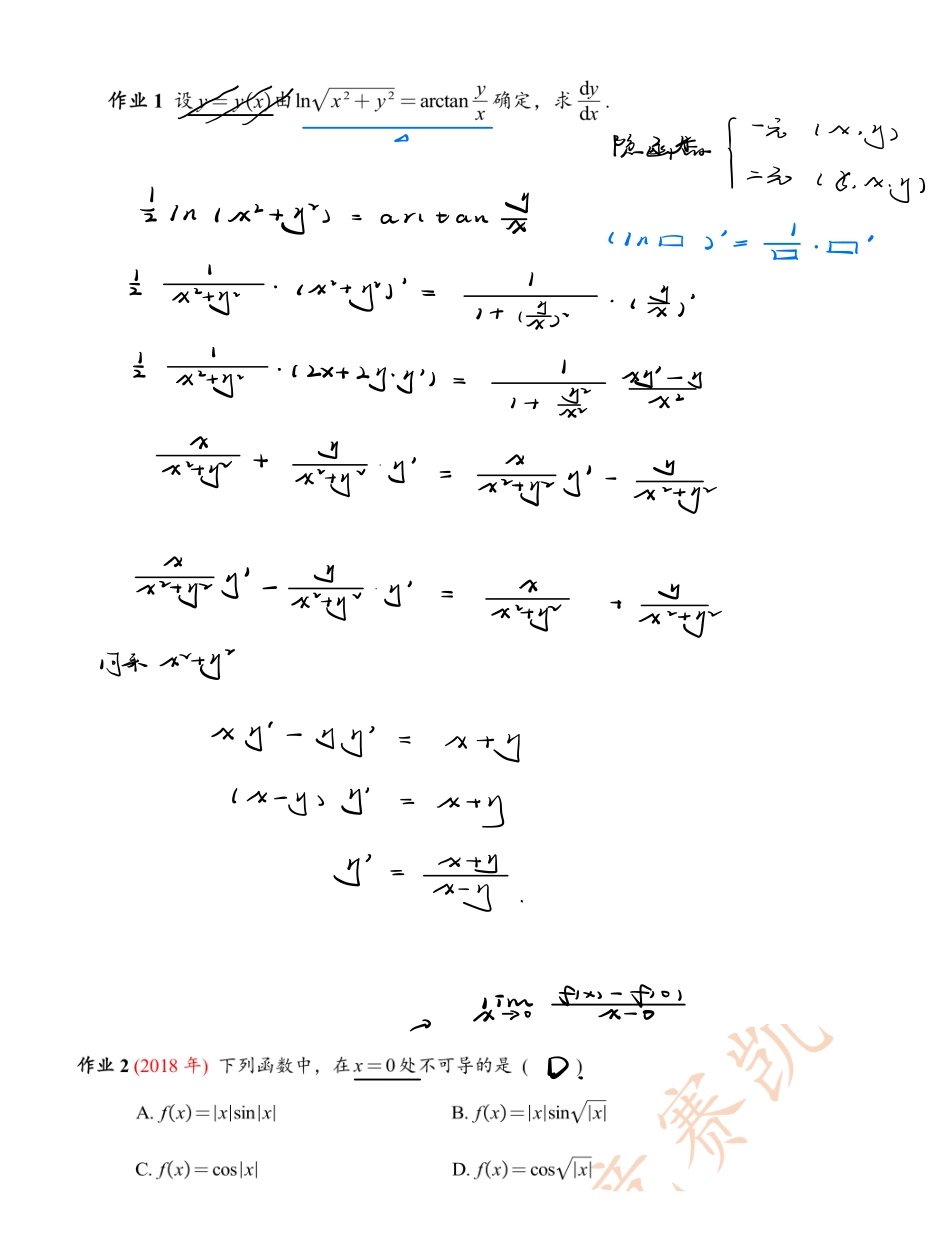 作业 1 设 y = y(x) 由 ln√(x² + y²) = arctan y/x 确定，求 dy/dx .
隐函数 { 一元 (x, y)
二元 (z, x, y)
½ ln (x² + y²) = arctan y/x
(ln □)' = 1/□ · □'
½ 1/(x²+y²) · (x²+y²)' = 1/(1+(y/x)²) · (y/x)'
½ 1/(x²+y²) · (2x+2y·y') = 1/(1+y²/x²) (xy'-y)/x²
x/(x²+y²) + y/(x²+y²) · y' = x/(x²+y²) y' - y/(x²+y²)
x/(x²+y²) y' - y/(x²+y²) · y' = x/(x²+y²) + y/(x²+y²)
同乘 x²+y²
xy' - yy' = x+y
(x-y) y' = x+y
y' = (x+y)/(x-y) .
→ lim x→0 (f(x) - f(0))/(x-0)
作业 2 (2018 年) 下列函数中，在 x = 0 处不可导的是 ( D )
A. f(x) = |x|sin|x| B. f(x) = |x|sin√|x|
C. f(x) = cos|x| D. f(x) = cos√|x|
赛凯